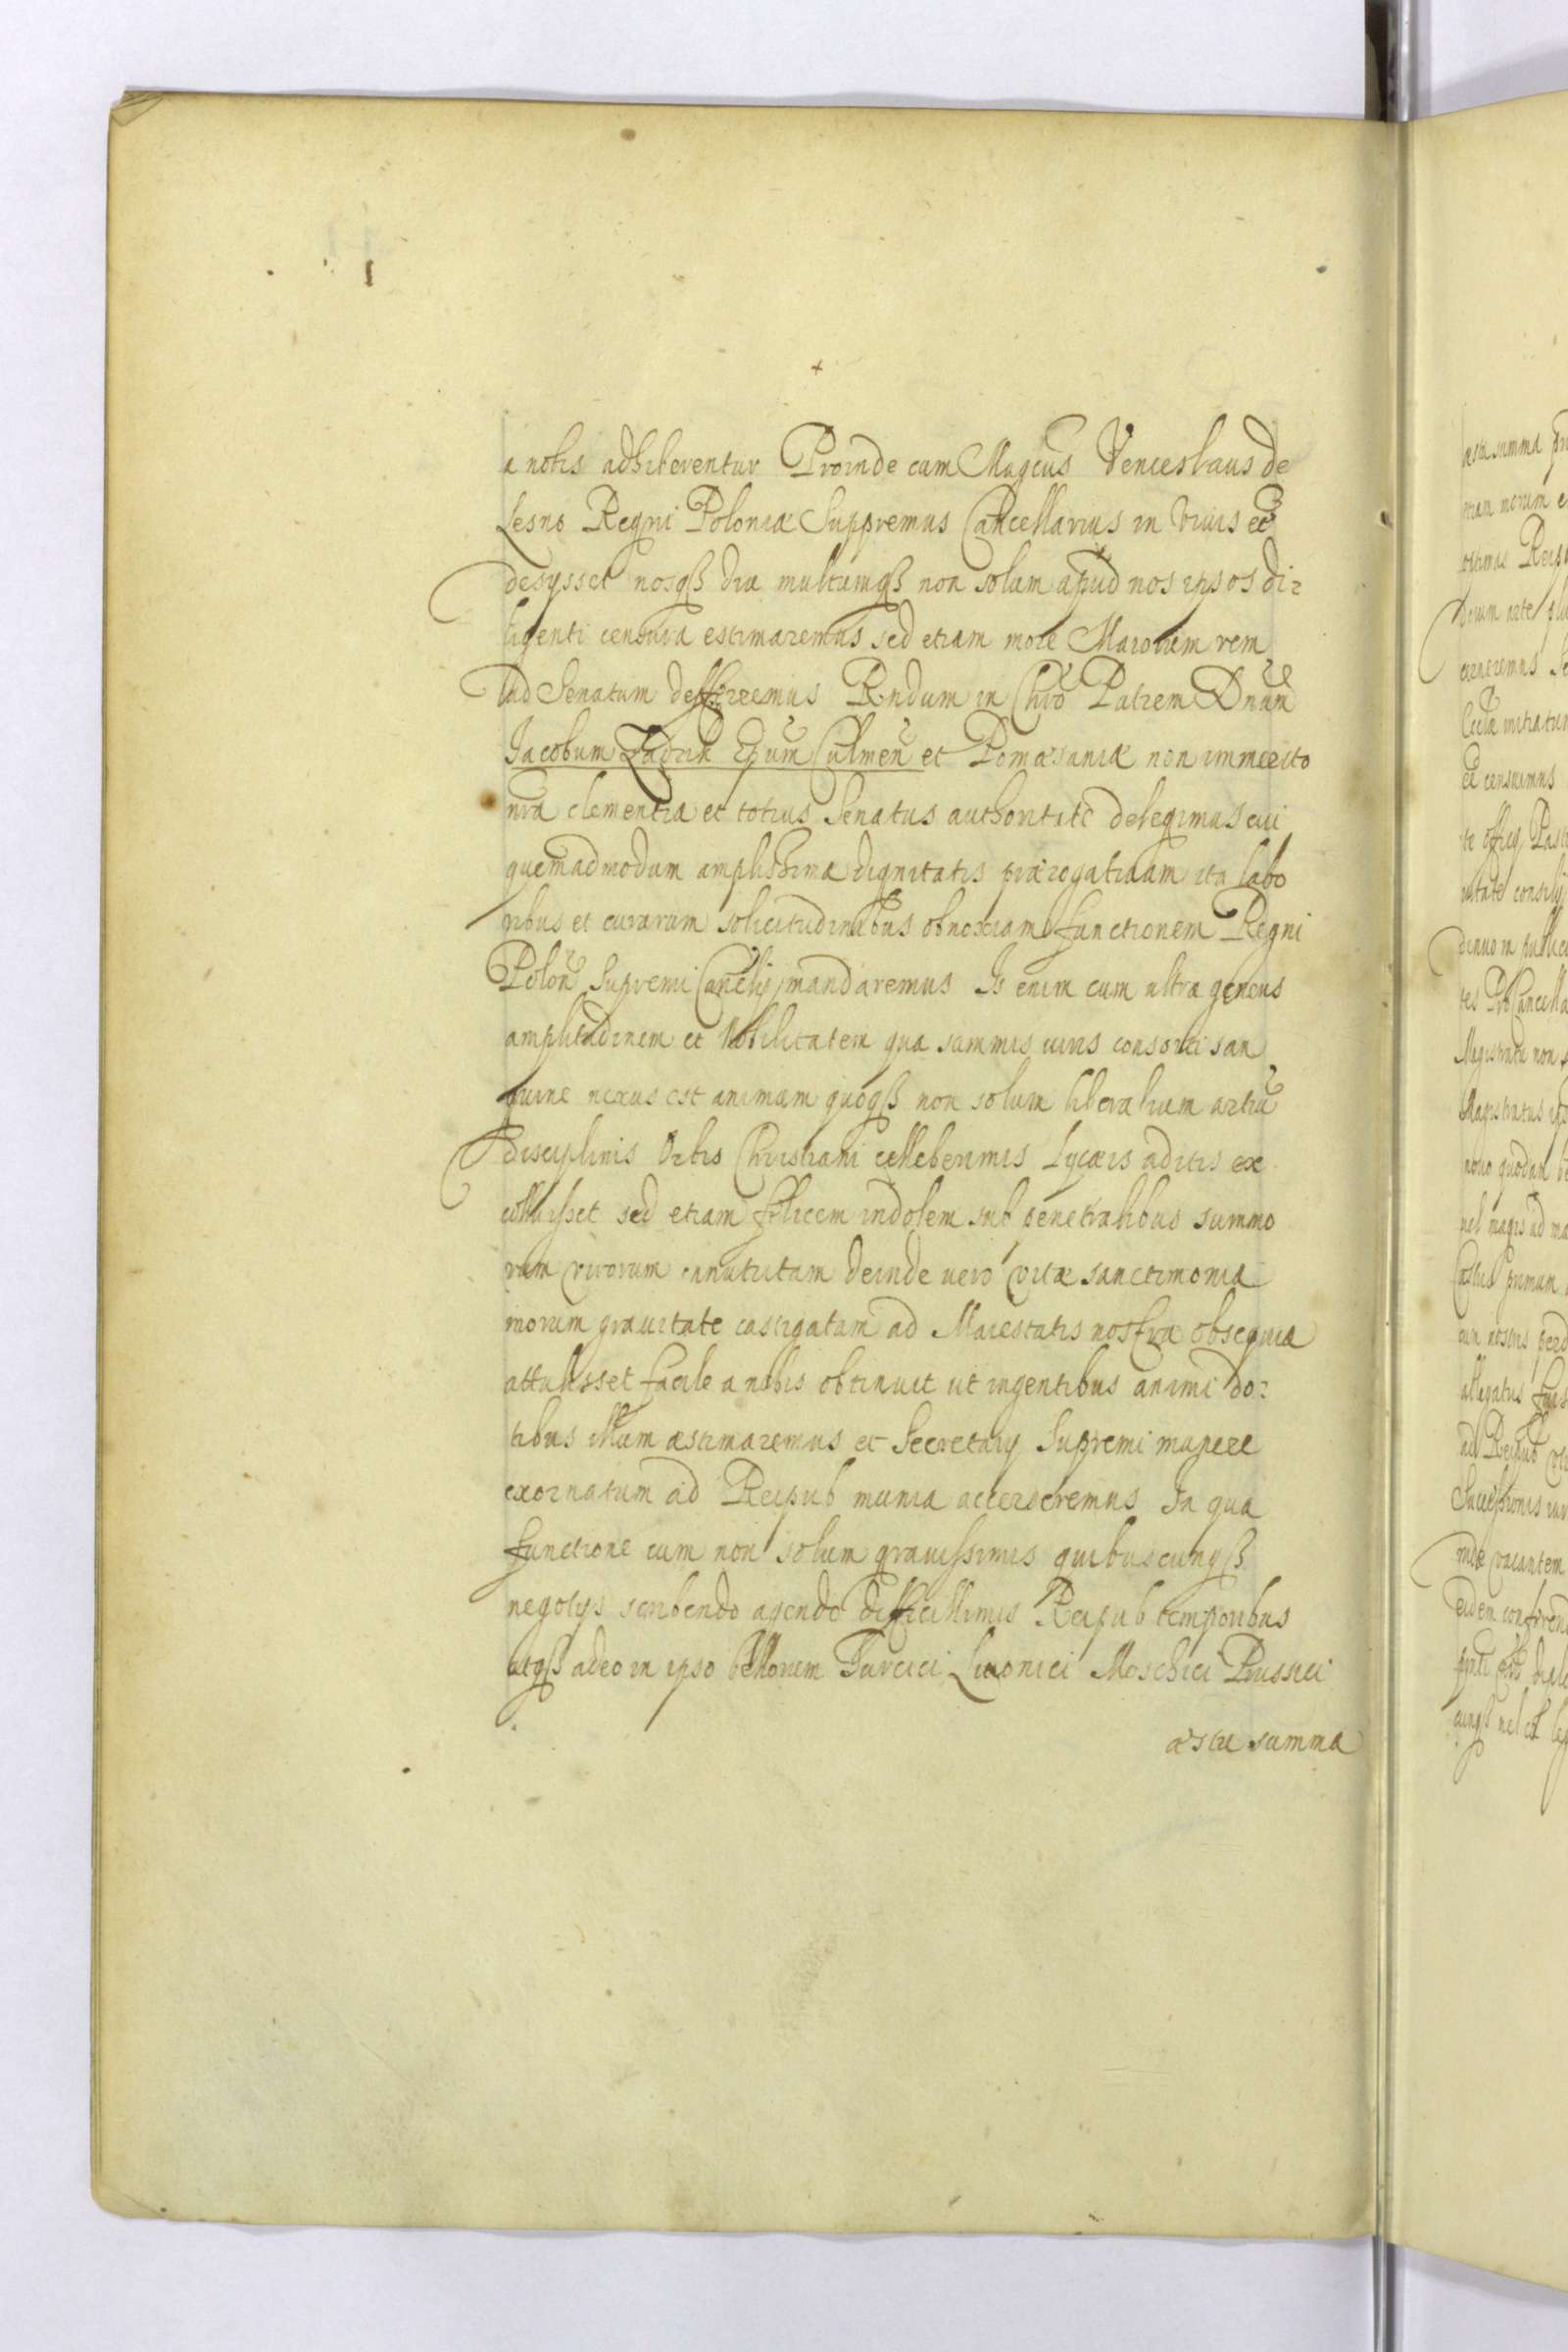 a nobis adhiberentur Proinde cum Magcus Venceslaus de
Lesno Regni Poloniæ Suppremus Cancellarius in viuis ee
desysset nosqß diu multumqß non solum apud nos ipsos di=
ligenti censura estimaremus sed etiam more Maiorum rem
ad Senatum defferremus Rndum in Chro Patrem Dnum
Iacobum Zadzik Epum Culmen et Pomæsaniæ non immerito
nra clementia et totius Senatus authoritate delegimus cui
quemadmodum amplissima dignitatis prærogatiuam ita labo
ribus et curarum solicitudinibus obnoxiam functionem Regni
Polon Supremi Cancelrij mandaremus Is enim cum ultra generis
amplitudinem et Nobilitatem qua summis uiris consorti san
guine nexus est animam quoqß non solum liberalium artiu
disciplinis Orbis Christiani celleberimis Lycæis aditis ex
colluisset sed etiam felicem indolem sub penetralibus summo
rum virorum ennutritam deinde uero vitæ sanctimonia
morum grauitate castigatam ad Maiestatis nostræ obsequia
attulisset facile a nobis obtinuit ut ingentibus animi do=
tibus illum æstimaremus et Secretarij Supremi munere
exornatum ad Reipub munia accerseremus In qua
functione cum non solum grauissimis quibuscunqß
negotys scribendo agendo difficillimis Reipub temporibus
atqß adeo in ipso bellorum Turcici Liuonici Moschici Prussici
æstu summa